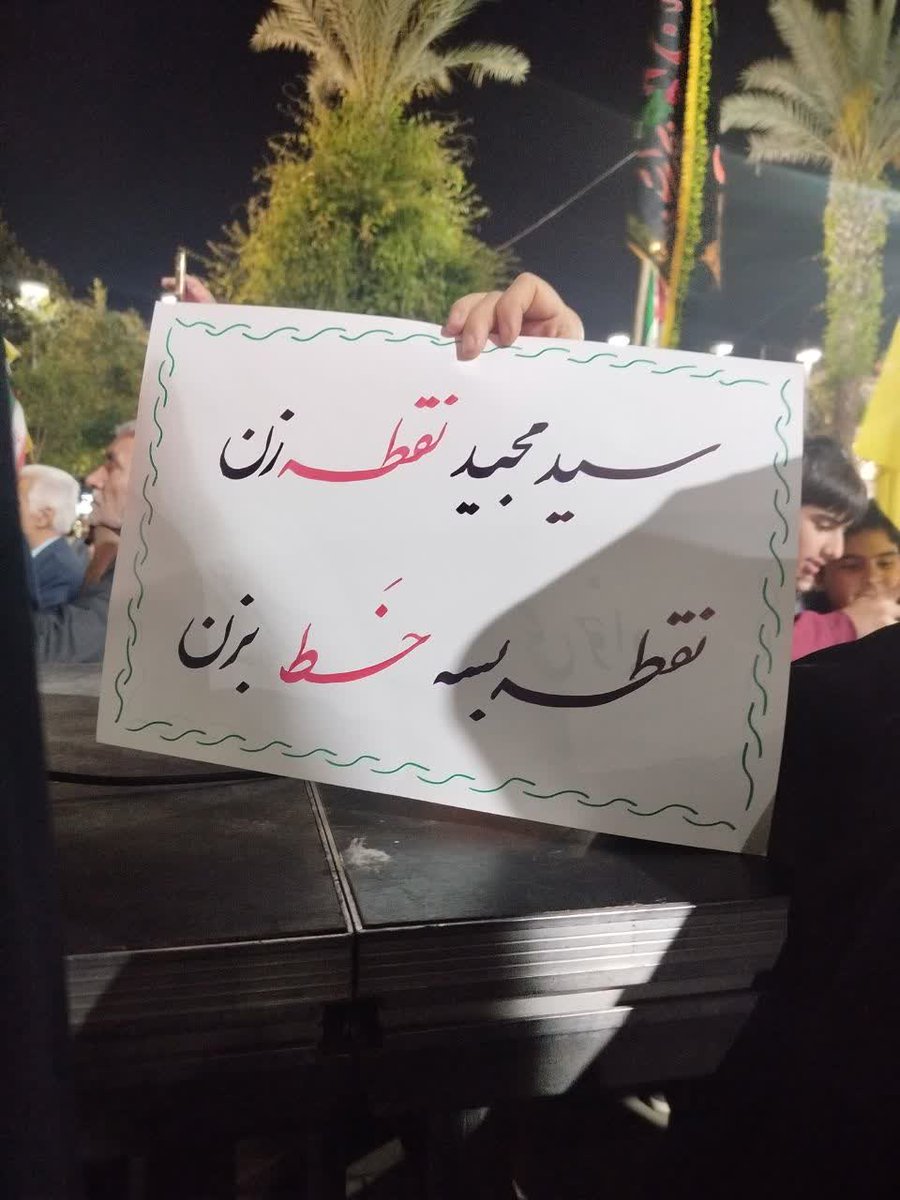 سید مجید نقطه زن
نقطه بسه خَط بزن